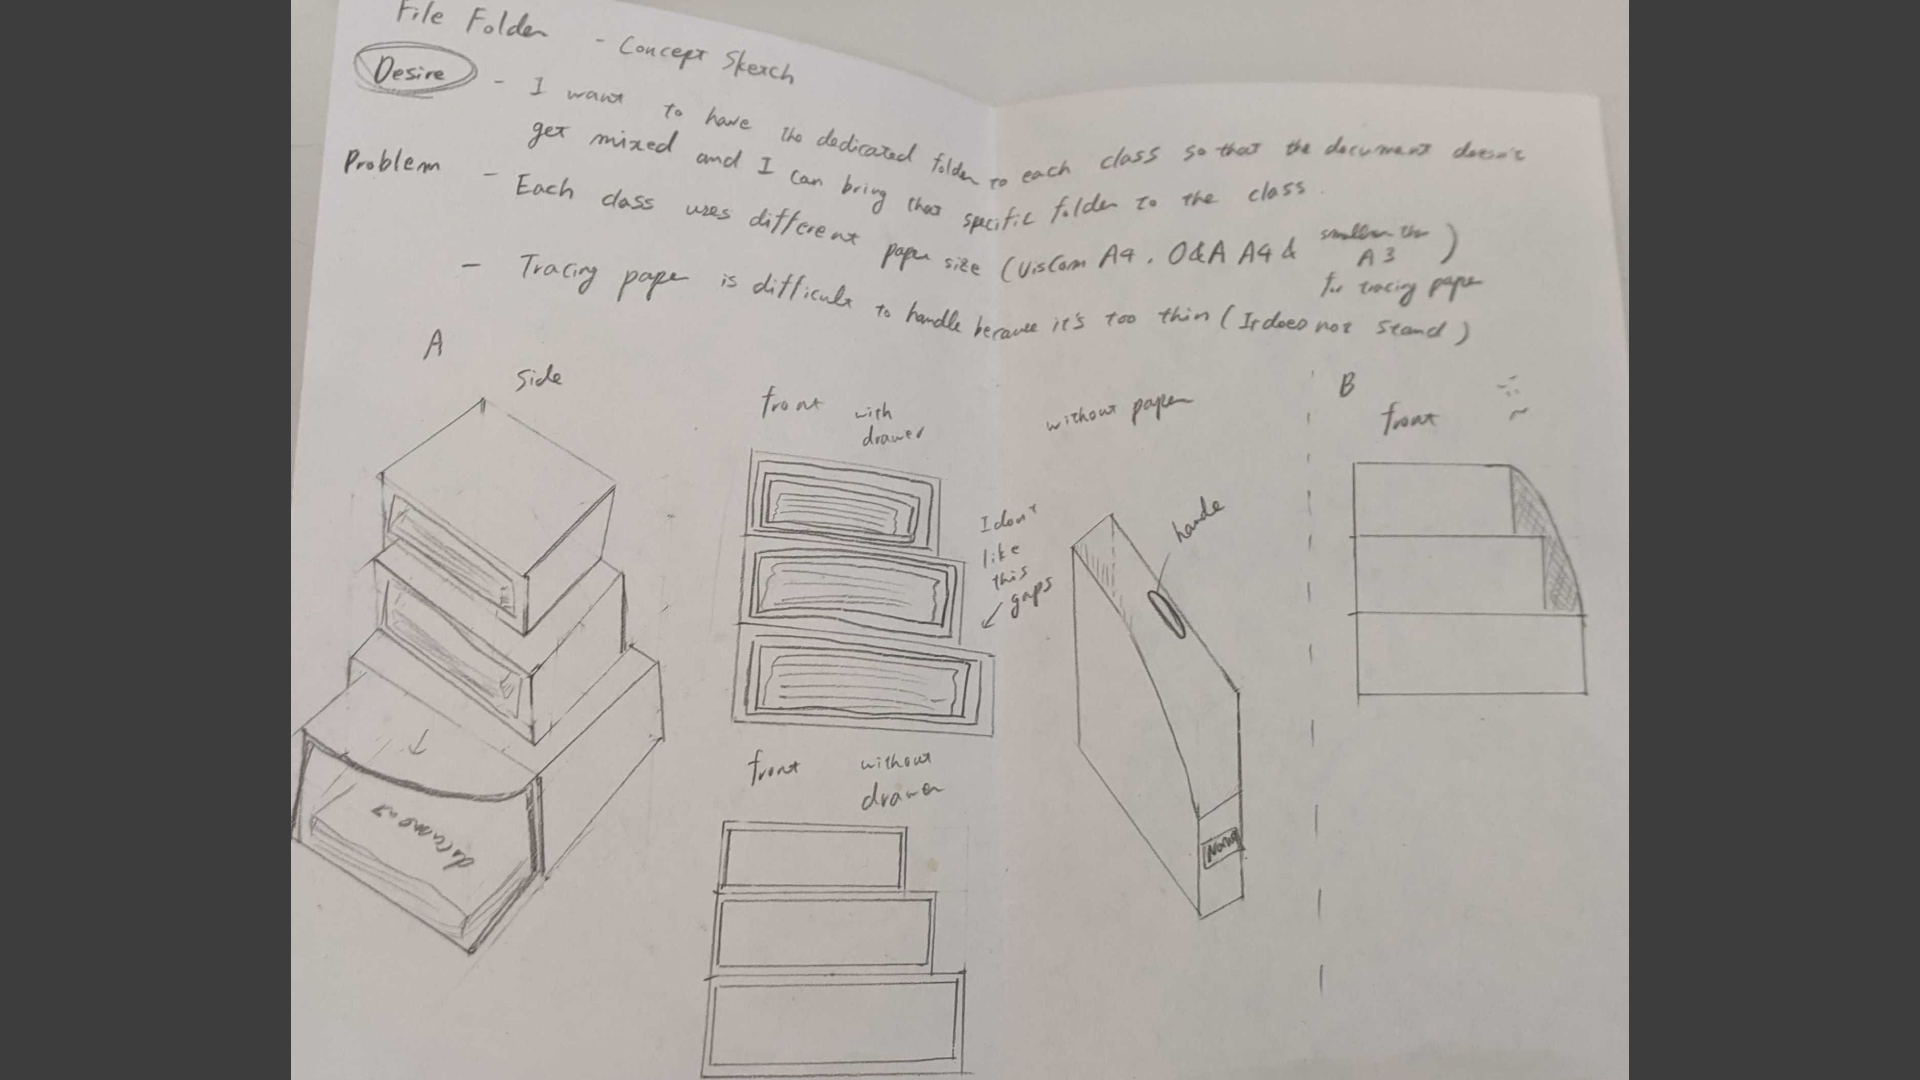 File Folder - Concept Sketch
Desire - I want to have the dedicated folder to each class so that the document doesn't
get mixed and I can bring that specific folder to the class.
Problem - Each class uses different paper size (VisCom A4, O&A A4 & smaller than A3)
for tracing paper
- Tracing paper is difficult to handle because it's too thin (It does not stand)
A
side
document
front with
drawer
I don't
like
this
gaps
front without
drawer
without paper
hande
Name
B
front